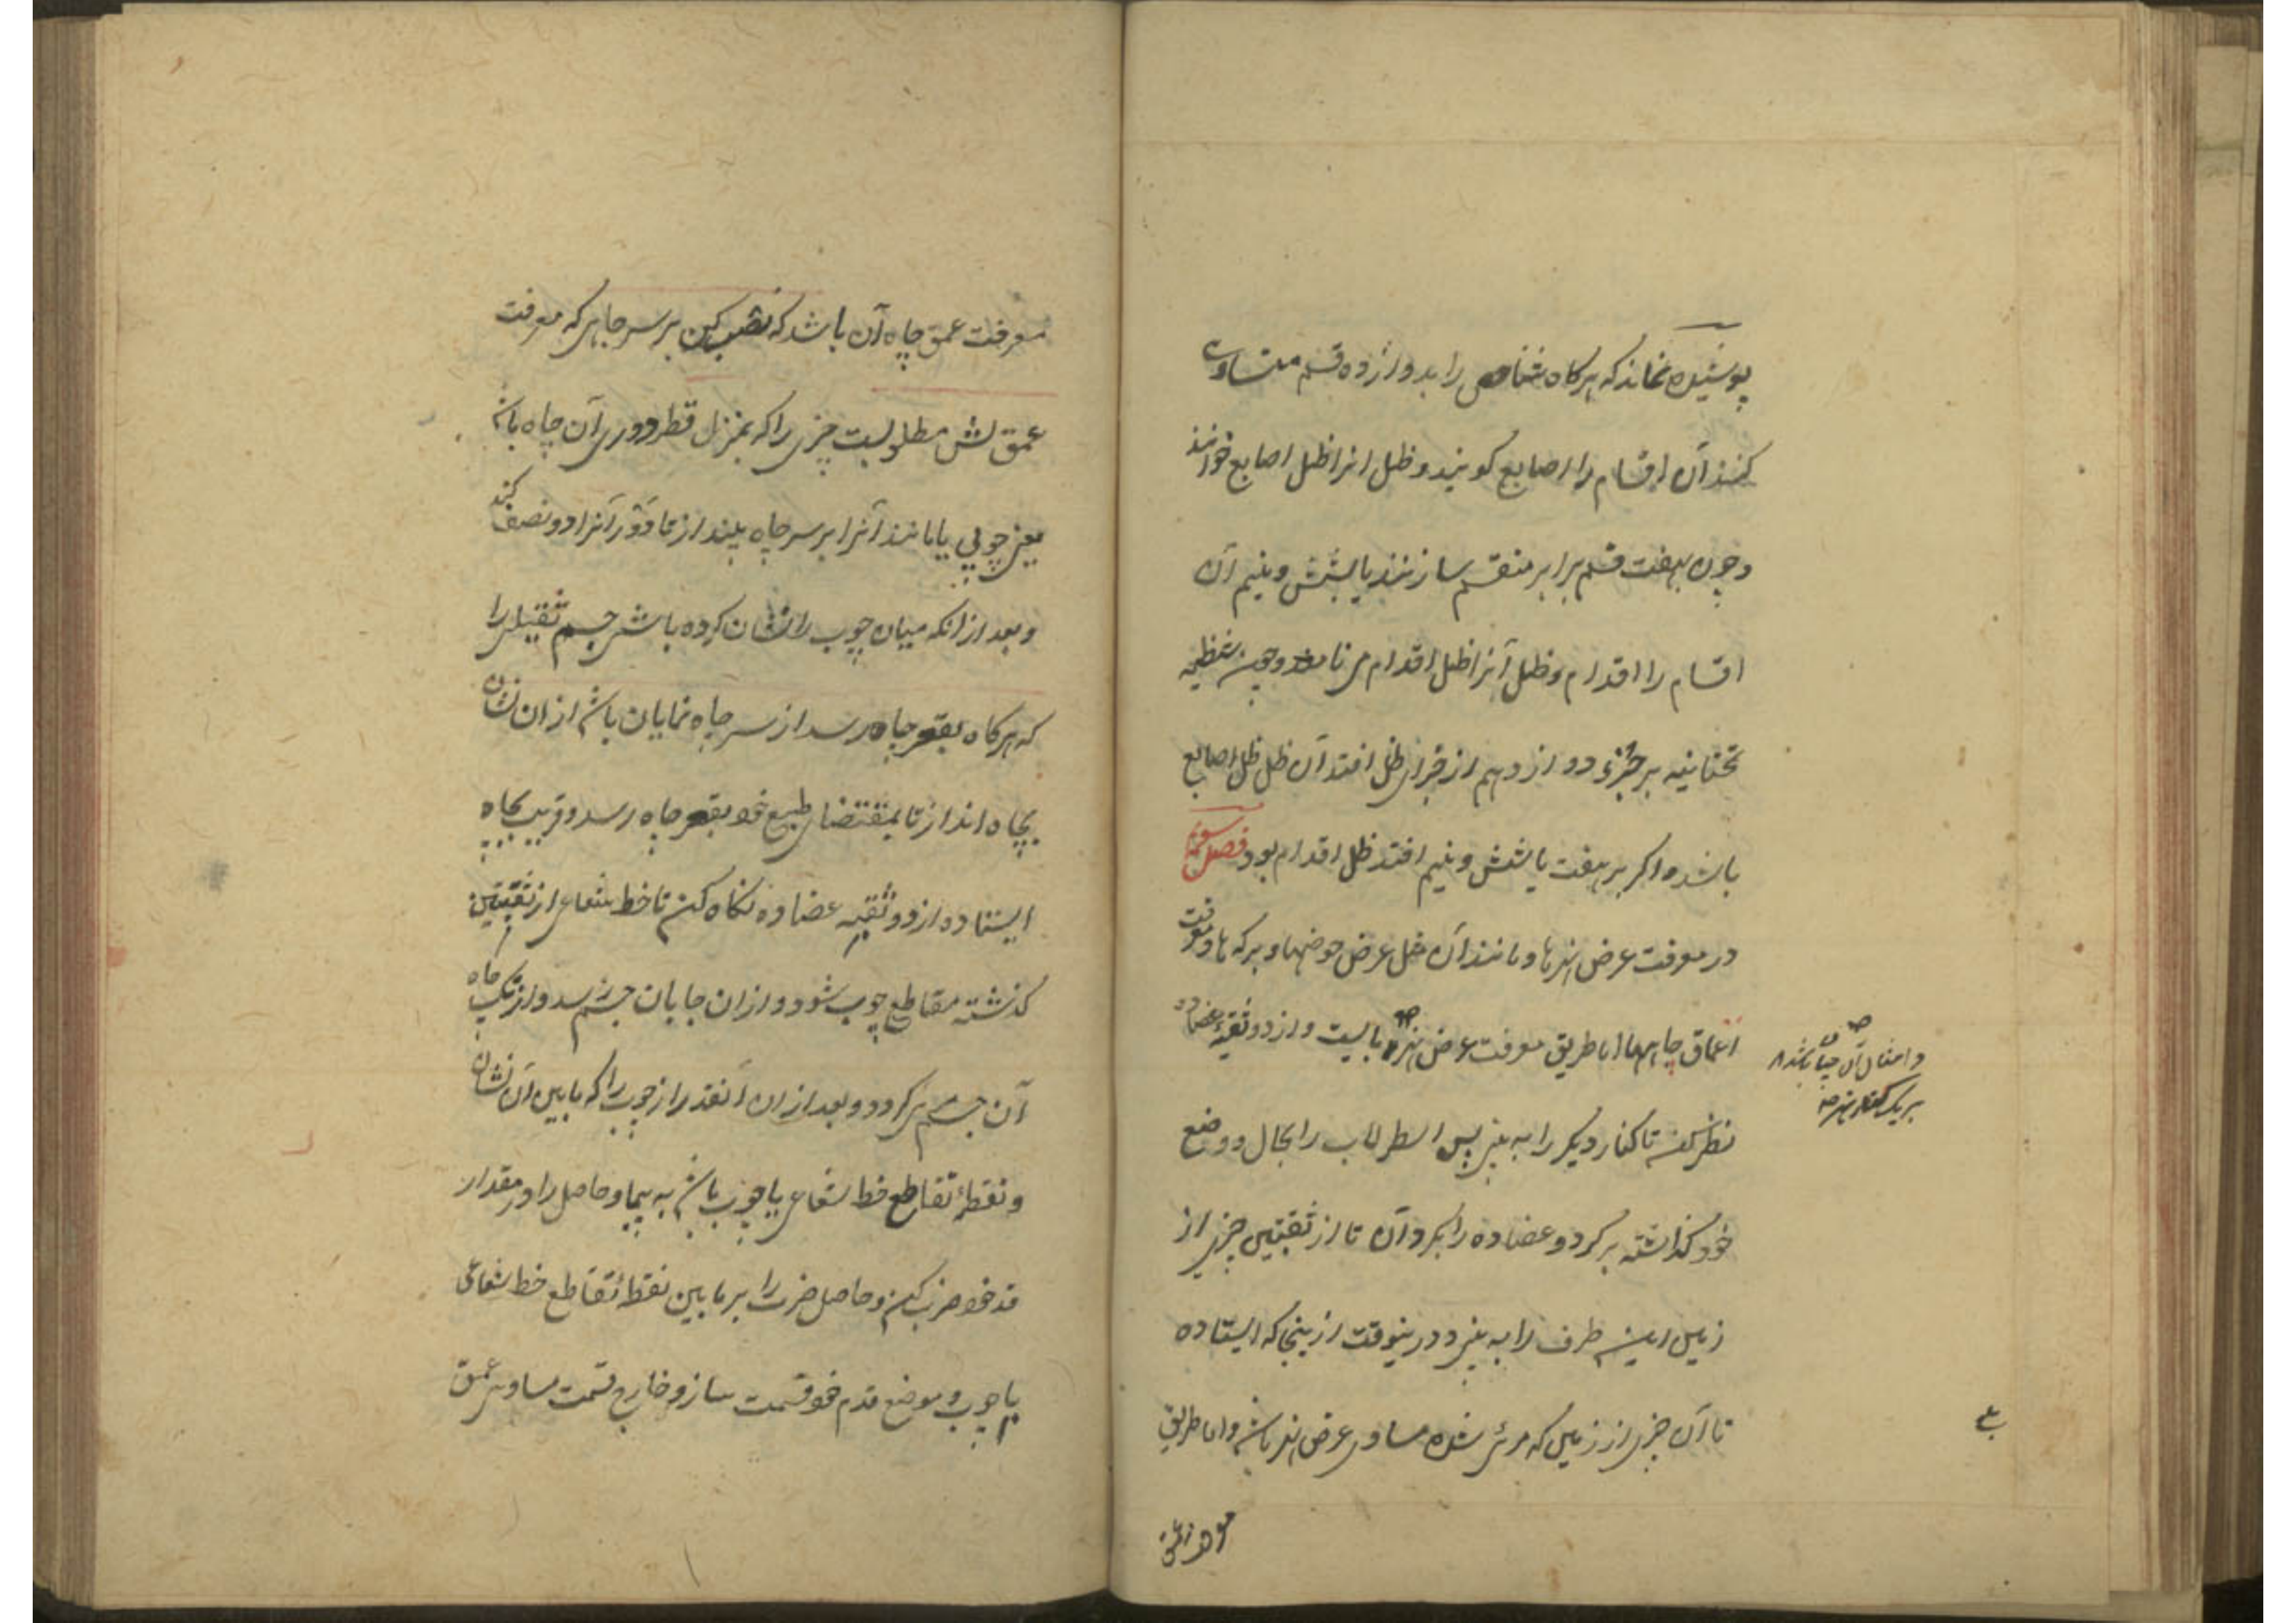 پوشیده نماند که هرکاه شاخص را بدوازده قسم متساوی
کنند آن اقسام را اصابع کویند و ظل انرا ظل اصابع خوانند
و چون بهفت قسم برابر منقسم سازند یا بشش و نیم آن
اقسام را اقدام و ظل آنرا ظل اقدام می نامند و چون شظیه
تحتانیه بر جزء دوازدهم از اجزای ظل افتد آن ظل ظل اصابع
باشد و اکر بر هفت یا شش و نیم افتد ظل اقدام بود فصل سوم
در معرفت عرض نهرها و مانند آن مثل عرض حوضها و برکه ها و معرفت
اعماق چاهها اما طریق معرفت عرض نهر بایست و از دو ثقبهٔ عضاده
و امثال آن چنان باشد که
بر یک کنار نهر
نظر کن تا کنار دیکر را به بینی پس اسطرلاب را بحال و وضع
خود کذاشته برکرد و عضاده را بکردان تا از ثقبتین چیزی از
زمین این طرف را به بینی و درینوقت ازینجا که ایستاده
تا آن جزء از زمین که مرئی شده مساوی عرض نهر باشد و اما طریق
معرفت عمق
معرفت عمق چاه آن باشد که نصب کن بر سر چاهی که معرفت
عمق اش مطلوبست چیزی را که بمنزل قطر دور آن چاه باشد
یعنی چوبی یا مانند آنرا بر سر چاه بیندازتا دور آنرا دو نصف کند
و بعد ازانکه میان چوب را نشان کرده باشی جسم ثقیلی را
که هرکاه بقعر چاه رسد از سر چاه نمایان باشد ازان نشان
بچاه انداز تا بمقتضای طبع خود بقعر چاه رسد و قریب بچاه
ایستاده از دو ثقبه عضاده نکاه کن تا خط شعاعی از ثقبتین
کذشته مقاطع چوب شود و ازان جا بان جسم رسد و از تک چاه
آن جسم مرئی کردد و بعد ازان آنقدر از چوب را که مابین آن نشان
و نقطهٔ تقاطع خط شعاعی با چوب باشد به پیما و حاصل را در مقدار
قد خود ضرب کن و حاصل ضرب را بر مابین نقطهٔ تقاطع خط شعاعی
با چوب و موضع قدم خود قسمت ساز و خارج قسمت مساوی عمق